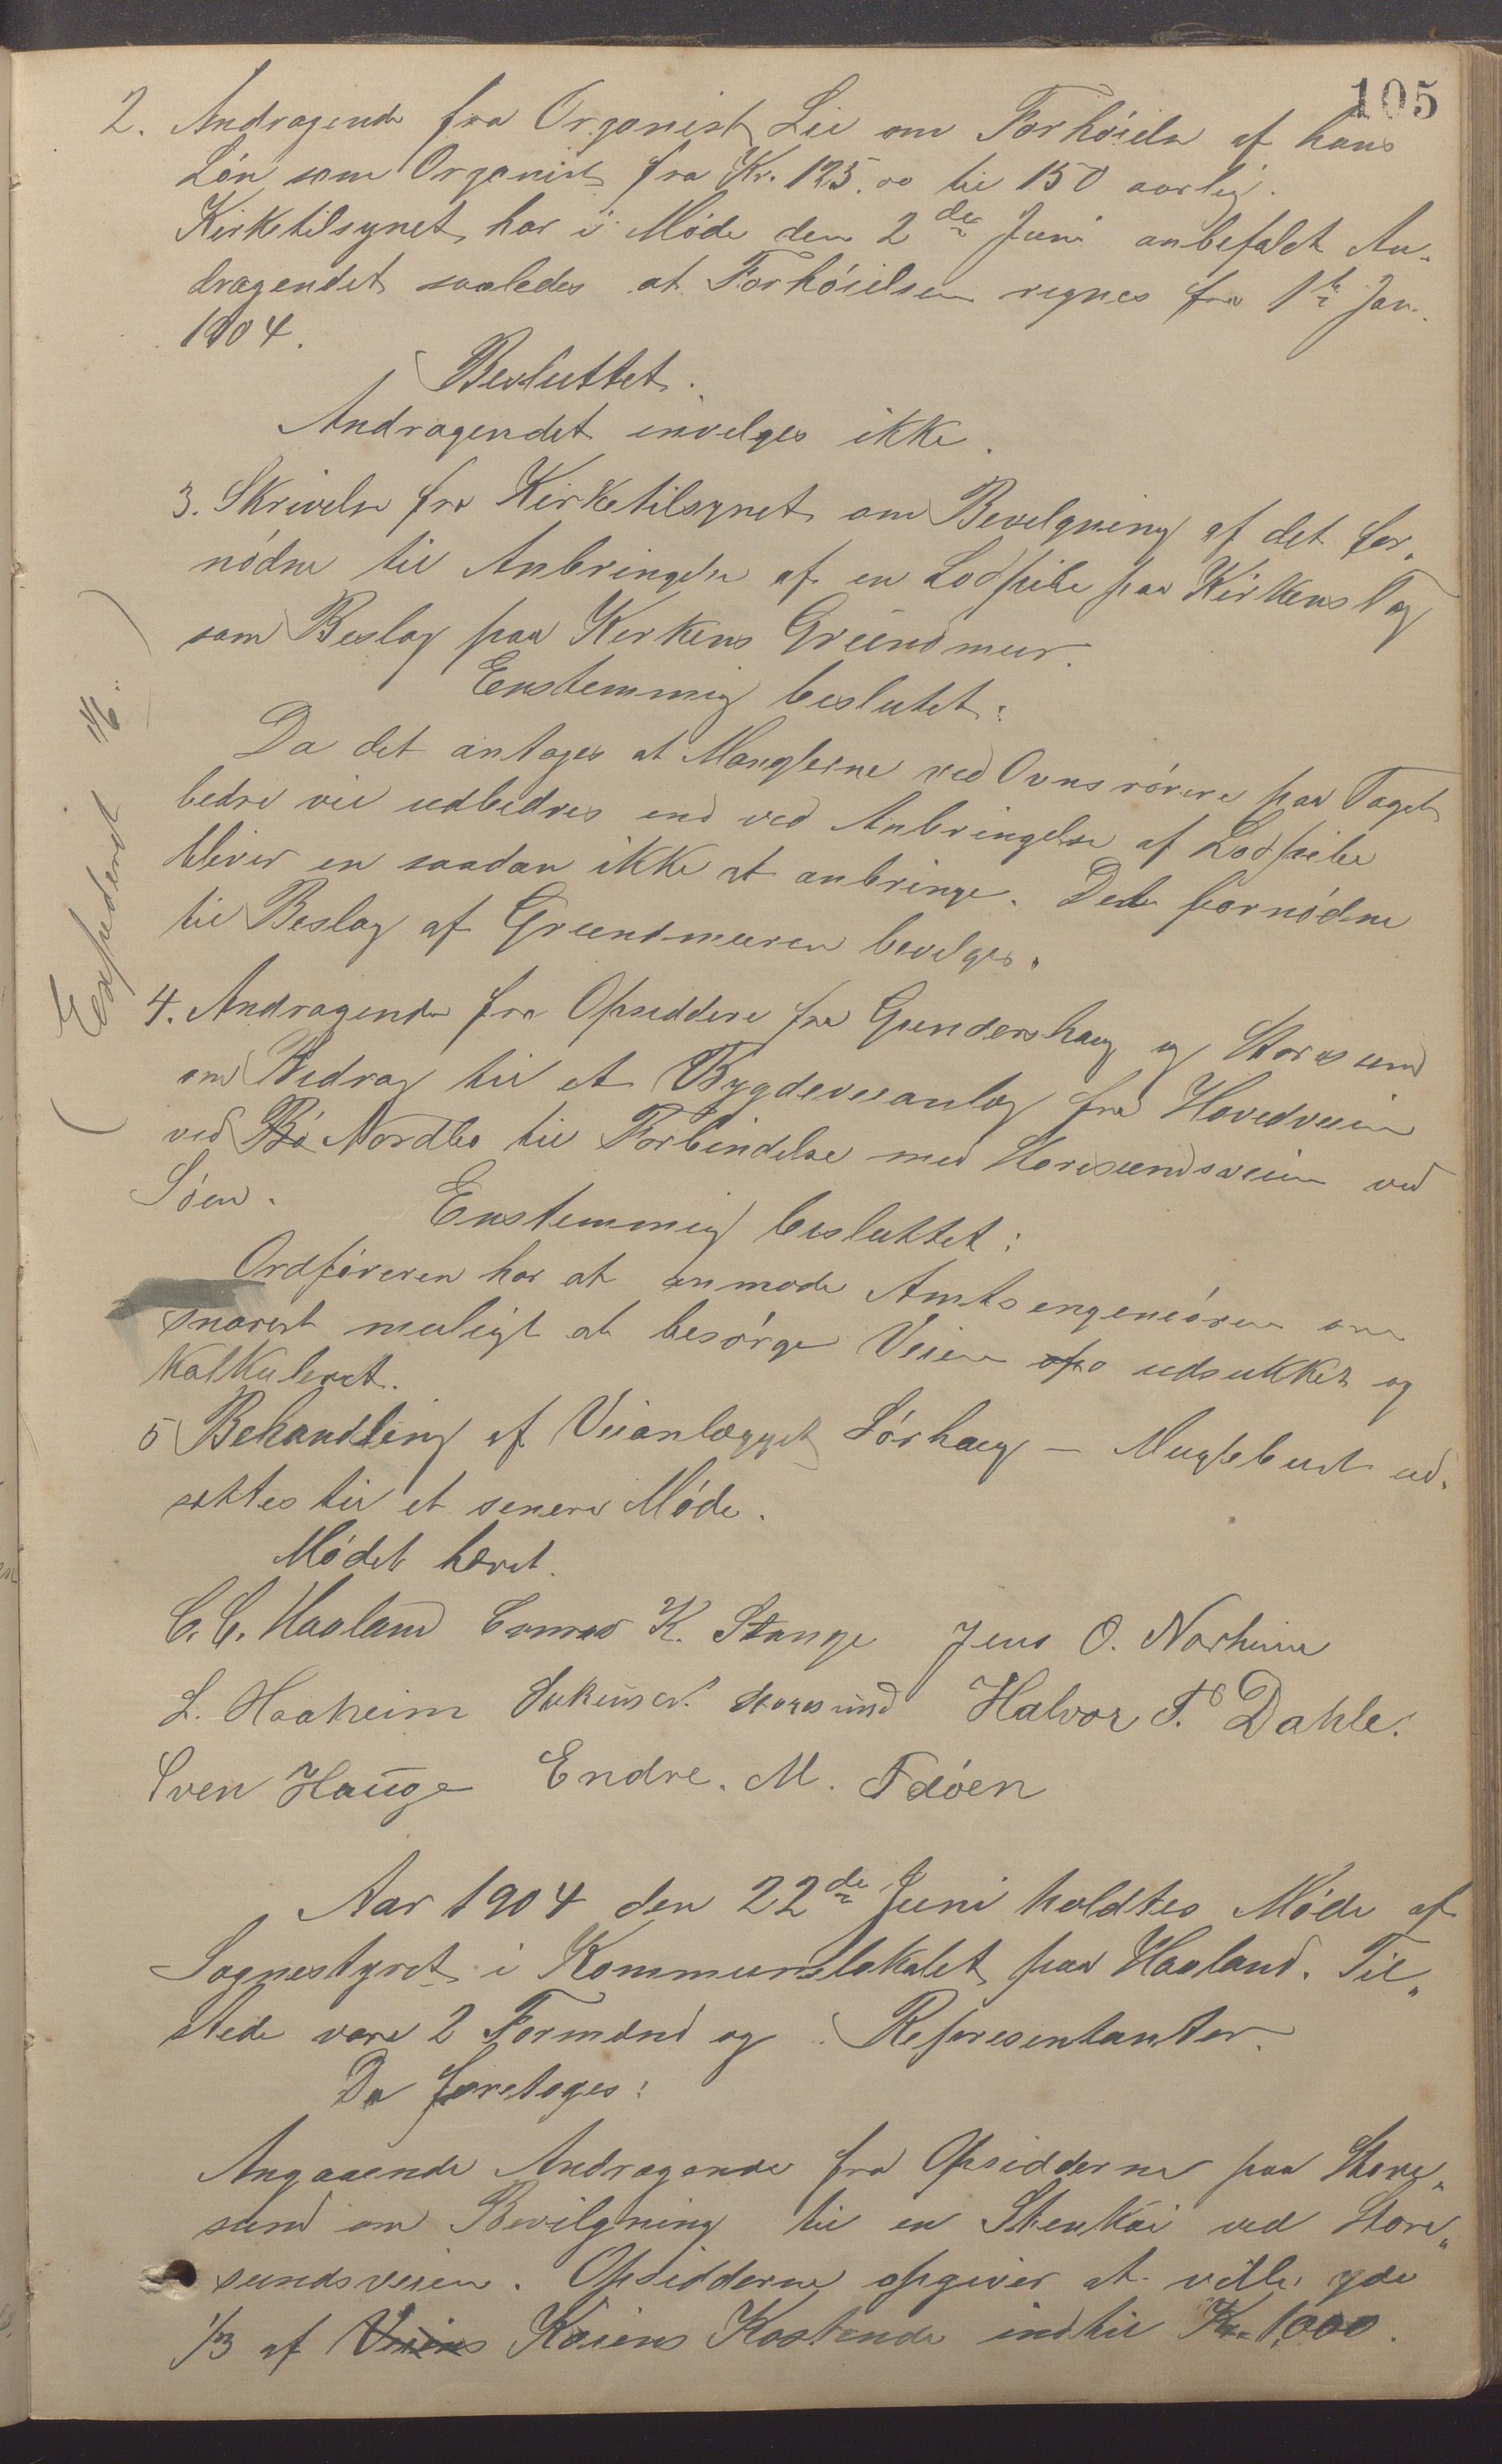 105
2. Andragende fra Organist Lie om Forhöielse af hans
Lön som Organist fra Kr. 125.00 til 150 aarlig.
Kirketilsynet har i Möde den 2den Juni anbefalet An-
dragendet saaledes at Forhöielsen regnes fra 1ste Jan.
1904.
Besluttet.
Andragendet invelges ikke.
3. Skrivelse fra Kirketilsynet om Bevelgning af det for-
nödne til Anbringelse af en Lodpibe paa Kirkens Tag
som Beslag paa Kirkens Grundmur.
Enstemmig beslutet:
Da det antages at Manglerne ved Ovnsrörene paa Taget
bedre vil udbedres end ved Anbringelse af Lodpibe
bliver en saadan ikke at anbringe. Det fornödne
til Beslag af Grundmuren bevelges.
Expederet 11/6.
4. Andragende fra Opsiddere fra Gundershaug og Storesund
om Bidrag til et Bygdeveianlæg fra Hovedveien
ved Bö Nordbö til Forbindelse med Storesundsveien ved
Söen.
Enstemmig besluttet:
Ordföreren har at anmode Amtsengeniören om
snarest muligt at besörge Veien opo udsukket og
Kalkuleret.
5 Behandling af Veianlægget Sörhaug - Muglebust ud-
sættes til et senere Möde.
Mödet hævet.
C. C. Haaland Conrad K. Stange Jens O. Norheim
L. Haaheim Storesund Halvor T. Dahle.
Sven Hauge Endre. M. Fröen
Aar 1904 den 22de Juni holdtes Möde af
Sognestyret i Kommunelokalet paa Haaland. Til-
stede vare 2 Formænd og Representanter.
Da foretoges:
Angaaende Andragende fra Opsidderne paa Store-
sund om Bevilgning til en Stenkai ved Store-
sundsveien. Opsidderne opgiver at ville yde
1/3 af Veiens Kaiens Kostende indtil Kr. 1000.